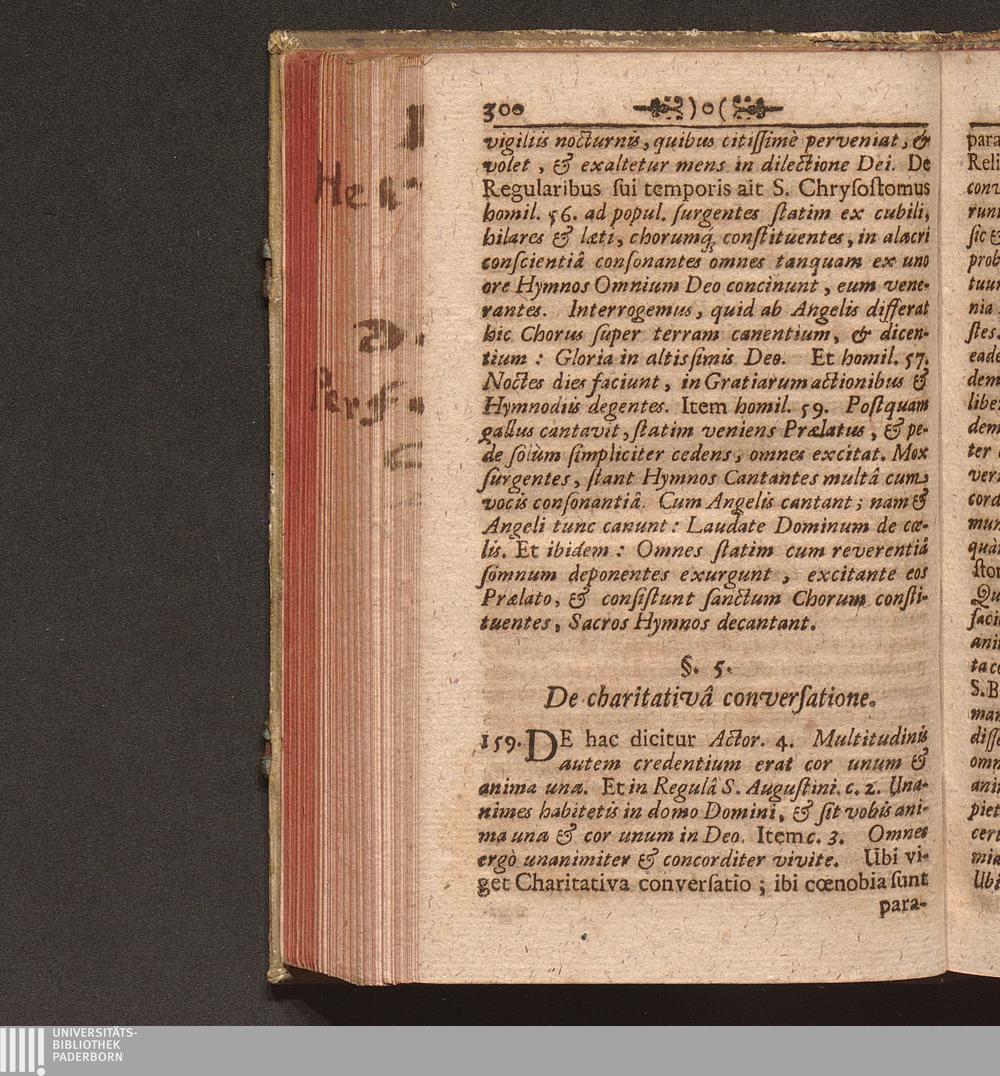 300 ) o (
vigiliis nocturnis, quibus citiſſimè perveniat, &
volet, & exaltetur mens in dilectione Dei. De
Regularibus ſui temporis ait S. Chryſoſtomus
homil. 56. ad popul. ſurgentes ſtatim ex cubili,
hilares & læti, chorumq; conſtituentes, in alacri
conſcientiâ conſonantes omnes tanquam ex uno
ore Hymnos Omnium Deo concinunt, eum vene-
rantes. Interrogemus, quid ab Angelis differat
hic Chorus ſuper terram canentium, & dicen-
tium : Gloria in altisſimis Deo. Et homil. 57.
Noctes dies faciunt, in Gratiarum actionibus &
Hymnodiis degentes. Item homil. 59. Poſtquam
gallus cantavit, ſtatim veniens Prælatus, & pe-
de ſolùm ſimpliciter cedens, omnes excitat. Mox
ſurgentes, ſtant Hymnos Cantantes multâ cum
vocis conſonantiâ. Cum Angelis cantant; nam &
Angeli tunc canunt: Laudate Dominum de cœ-
lis. Et ibidem : Omnes ſtatim cum reverentiâ
ſomnum deponentes exurgunt, excitante eos
Prælato, & conſiſtunt ſanctum Chorum conſti-
tuentes, Sacros Hymnos decantant.
§. 5.
De charitativâ converſatione.
159. DE hac dicitur Actor. 4. Multitudinis
autem credentium erat cor unum &
anima una. Et in Regulâ S. Auguſtini. c. 2. Una-
nimes habitetis in domo Domini, & ſit vobis ani-
ma una & cor unum in Deo. Item c. 3. Omnes
ergò unanimiter & concorditer vivite. Ubi vi-
get Charitativa converſatio ; ibi cœnobia ſunt
para-
para
Reli
conv
runt
ſic &
prob
tuur
nia
ſtes.
eade
dem
liber
dem
ter
veri
cord
mun
quàm
ſtor
Qu
faci
ani
ta co
S. B
man
diſſ
omn
ani
piet
cert
mia
Ubi
UNIVERSITÄTS-
BIBLIOTHEK
PADERBORN